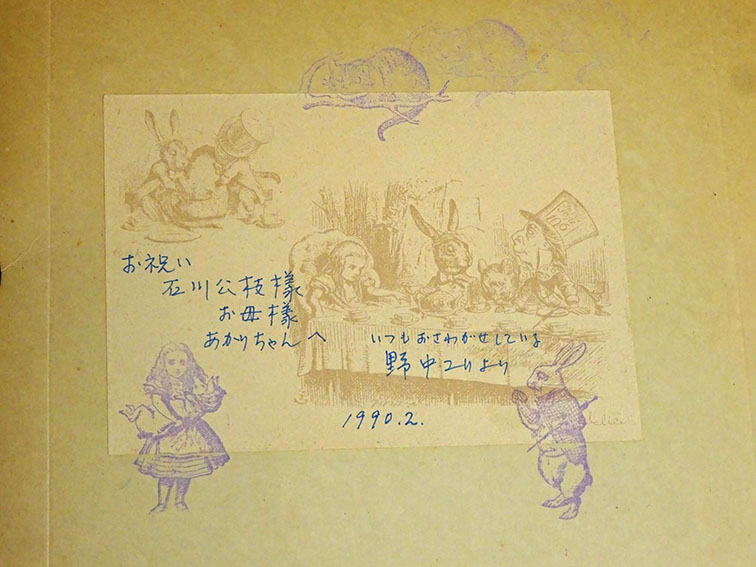 お祝い
石川公枝様
お母様
あかりちゃんへ
いつもおさわがせしている
野中ユリより
1990.2.
Alice